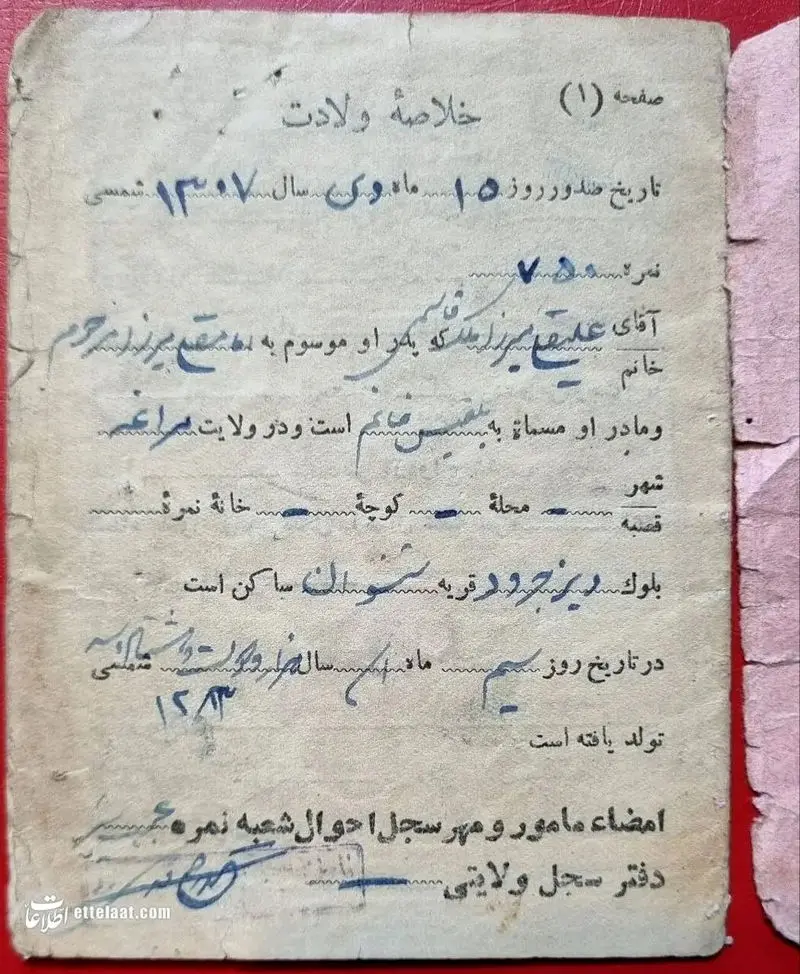 صفحه (۱)
خلاصهٔ ولادت
تاریخ صدور روز ۱۵ ماه دی سال ۱۳۰۷ شمسی
نمره ۷۵۰
آقای
خانم
علیقلی میرزا ملک قاسمی که پدر او موسوم به امامقلی میرزا مرحوم
و مادر او مسماة به بلقیس خانم است و در ولایت مراغه
شهر
قصبه
— محلهٔ — کوچهٔ — خانهٔ نمرهٔ
بلوک دیزجرود قریه شیراز ساکن است
در تاریخ روز سیم ماه سال هزار و دویست و هشتاد و سه شمسی
۱۲۸۳
تولد یافته است
امضاء مامور و مهر سجل احوال شعبه نمره
دفتر سجل ولایتی —
اطلاعات ettelaat.com